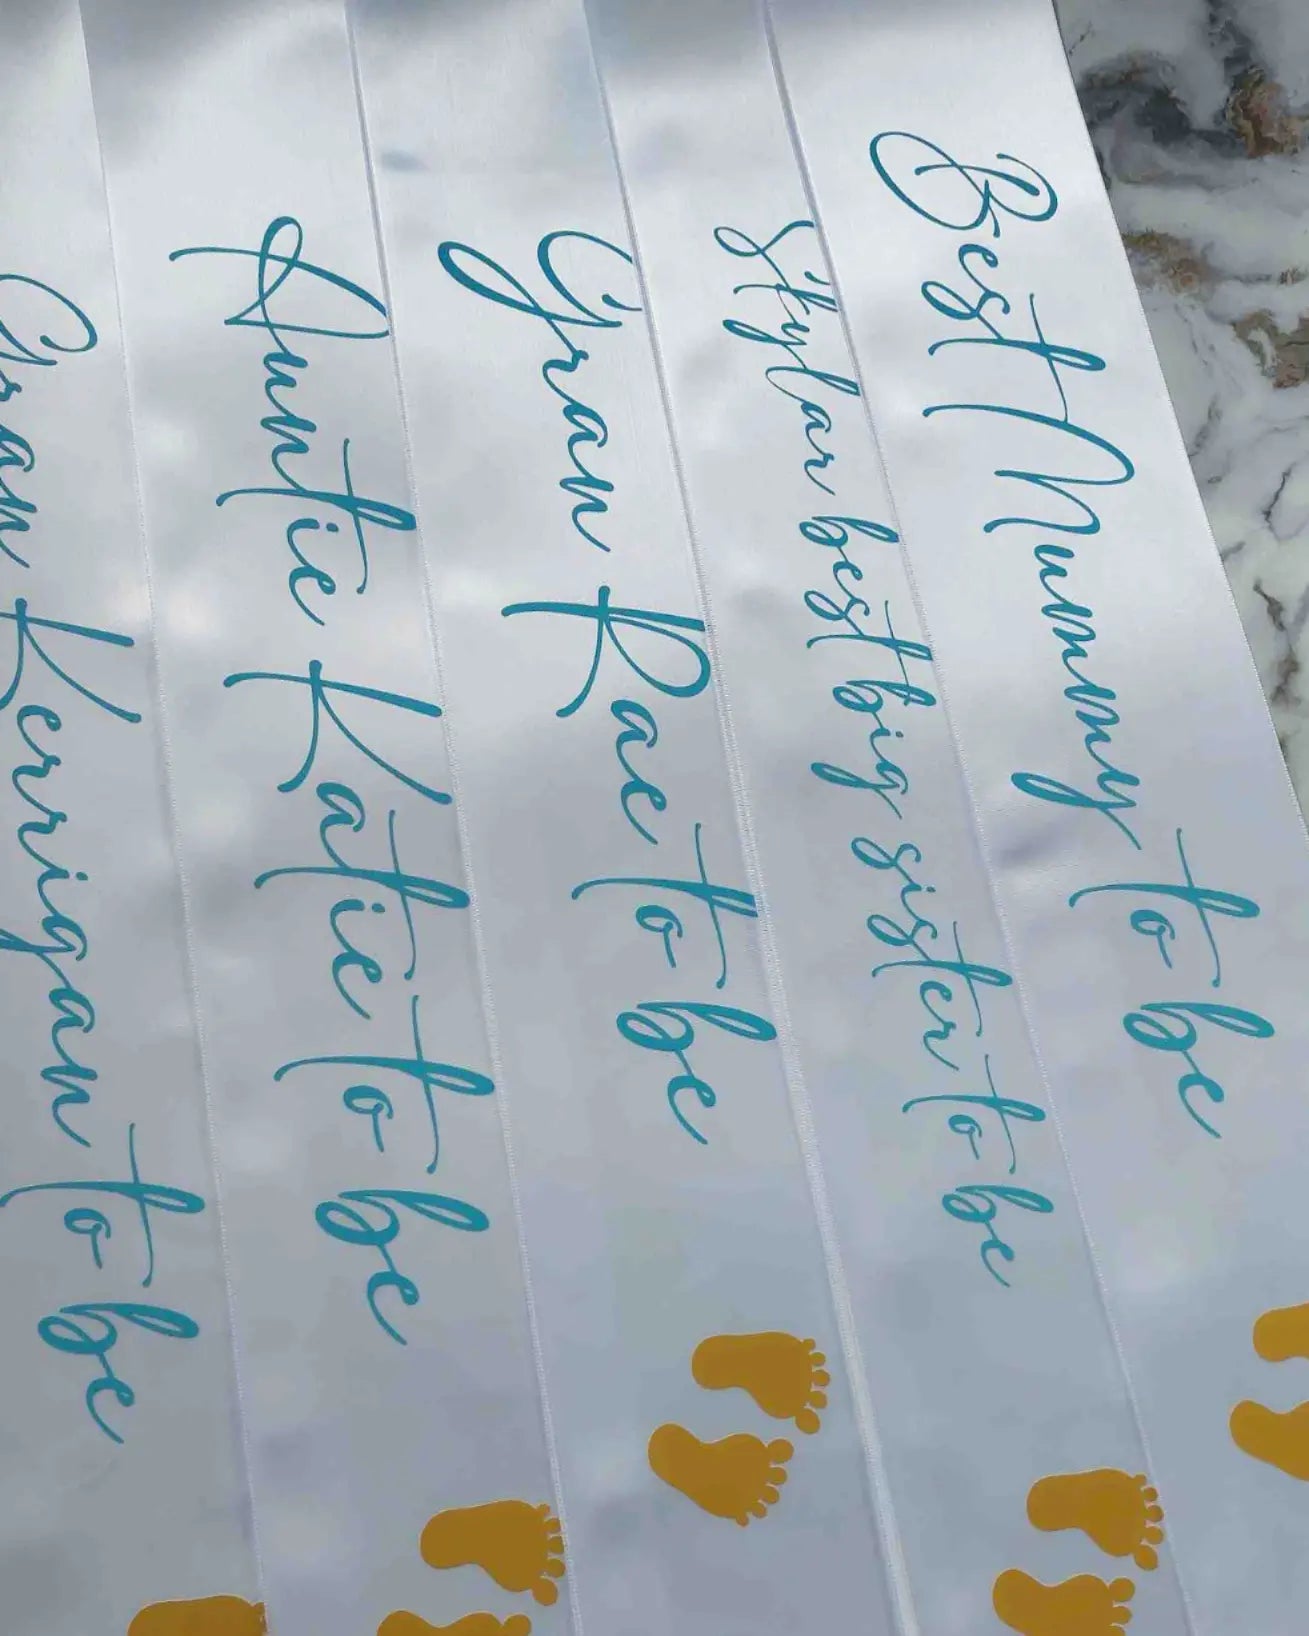 Best Mummy to be
Skylar best big sister to be
Gran Rae to be
Auntie Katie to be
Gran Kerrigan to be